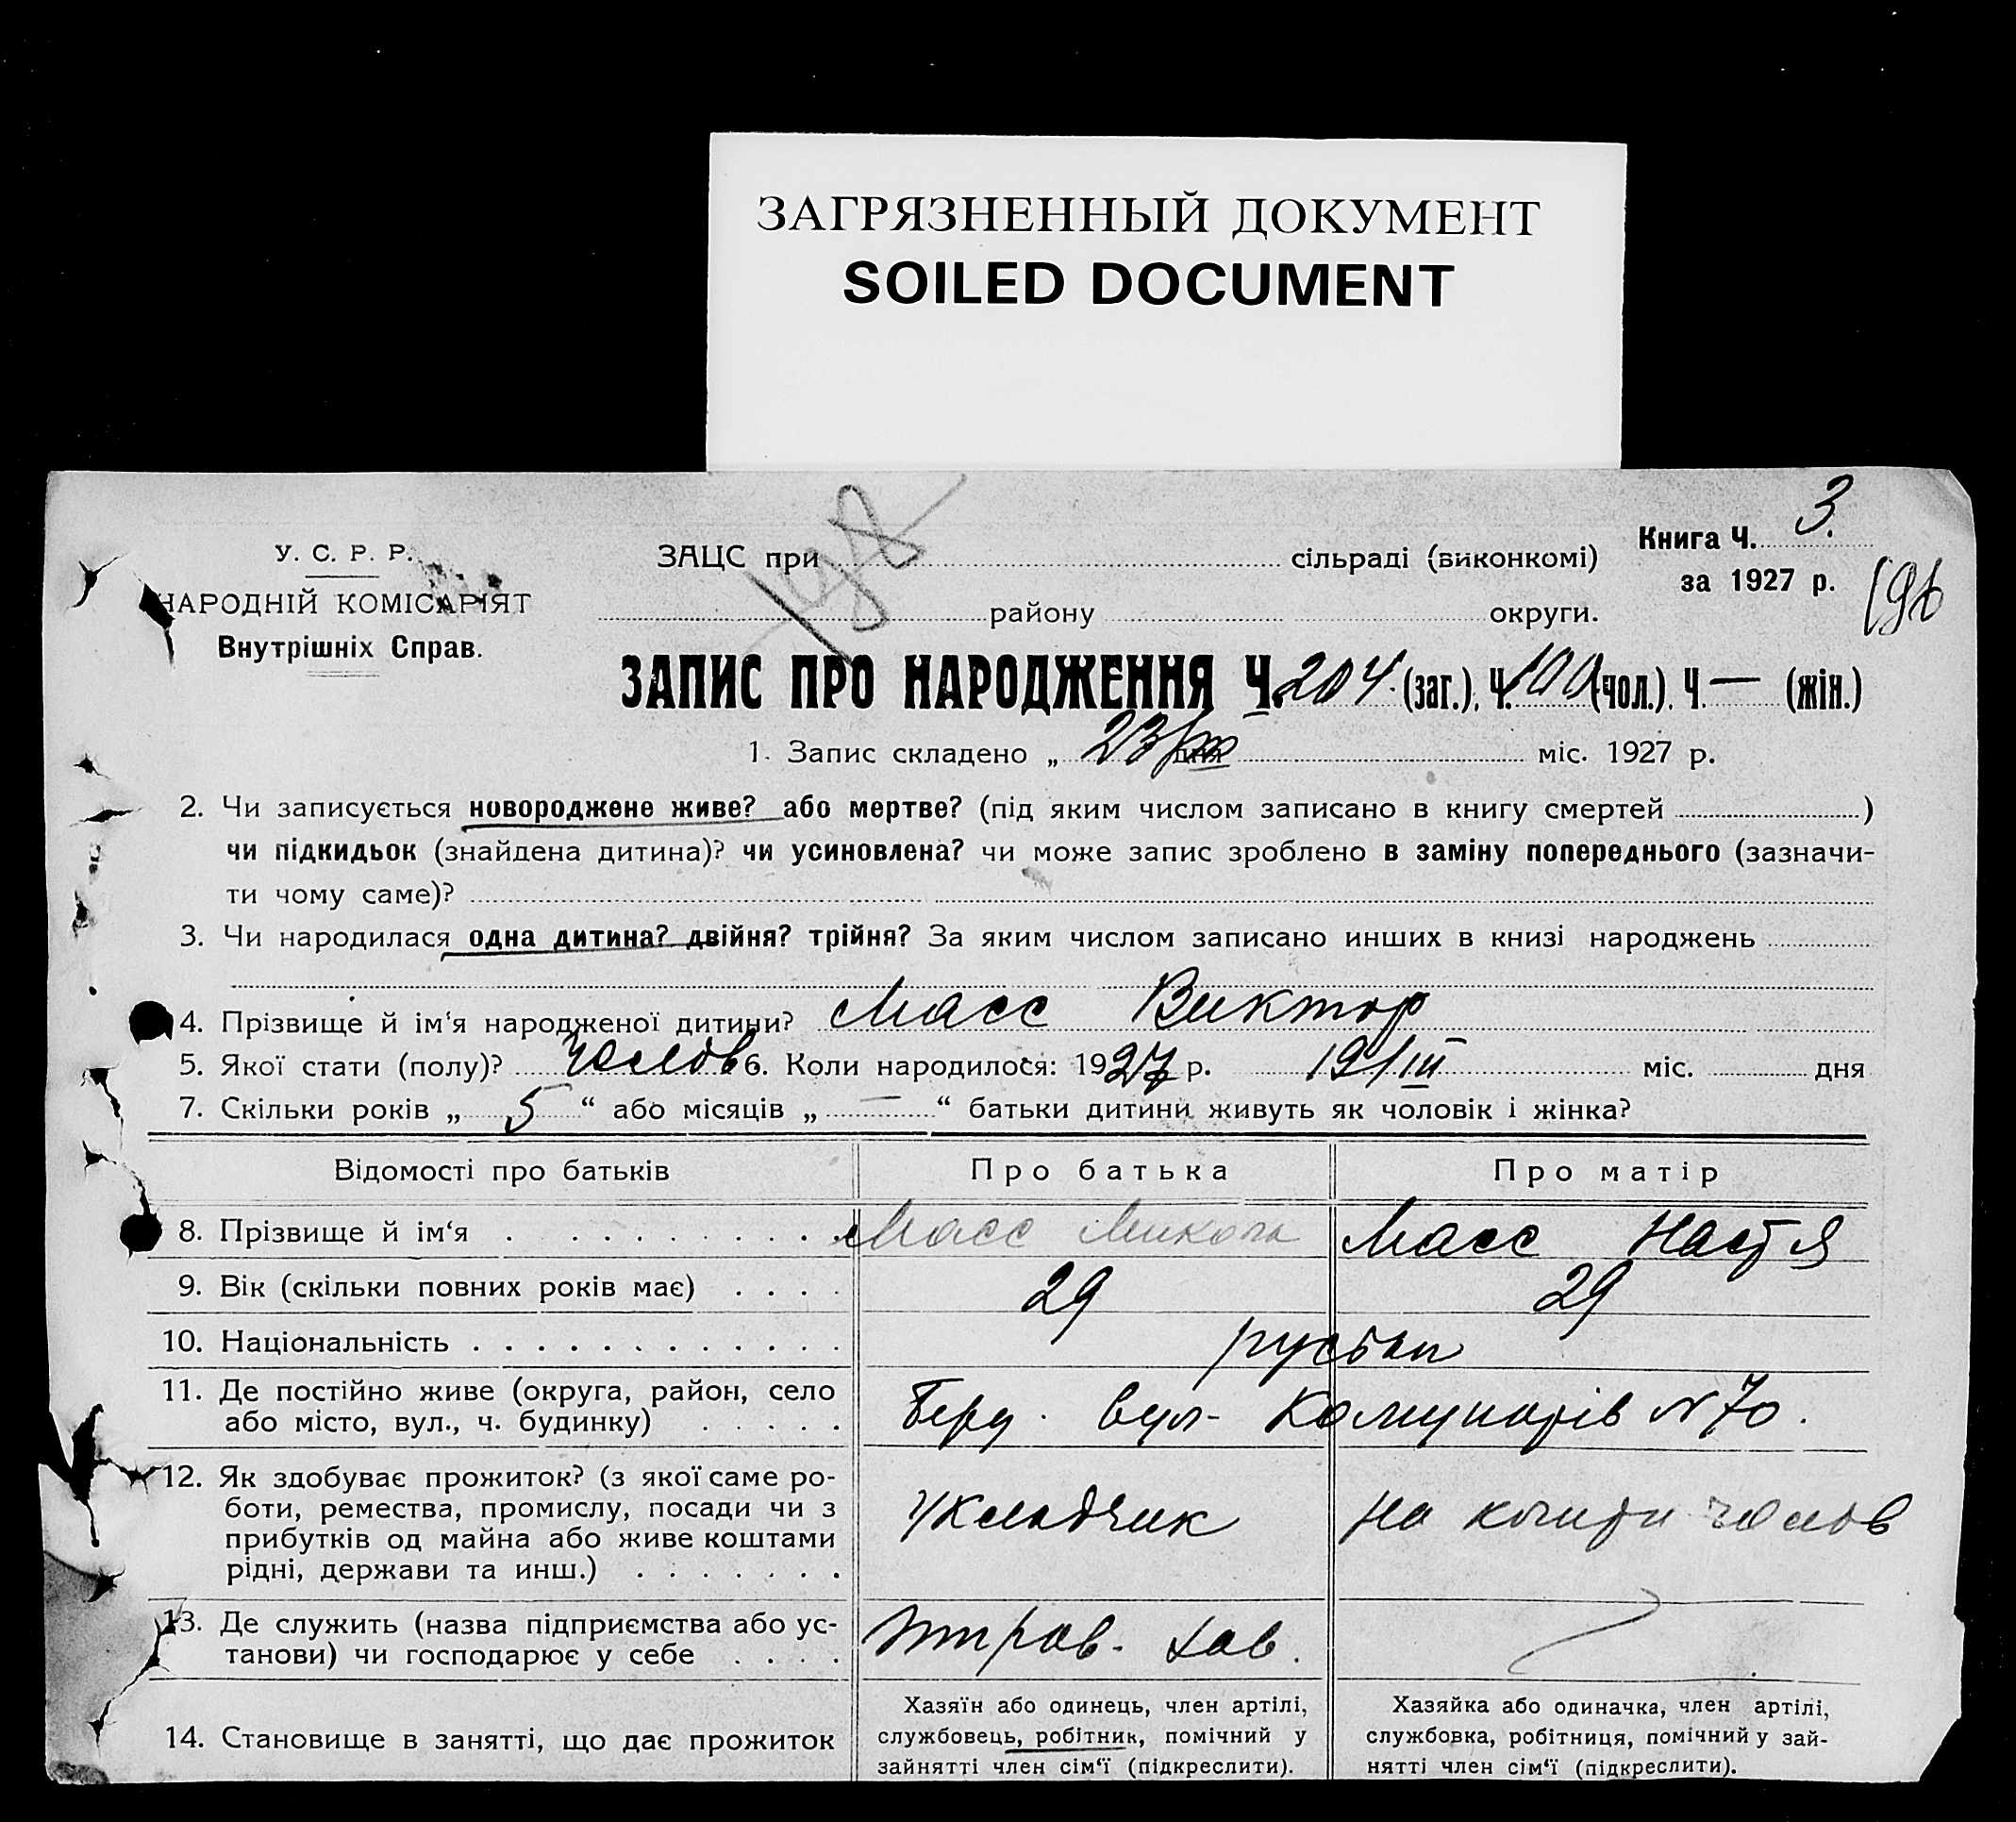 ЗАГРЯЗНЕННЫЙ ДОКУМЕНТ
SOILED DOCUMENT
3.
Книга Ч.
за 1927 р.
198
196
У. С. Р. Р.
НАРОДНІЙ КОМІСАРІЯТ
Внутрішніх Справ.
ЗАЦС при сільраді (виконкомі)
району округи.
ЗАПИС ПРО НАРОДЖЕННЯ Ч. 204 (заг.), Ч. 100 (чол.). Ч. — (жін.)
1. Запис складено „ 23/III дня міс. 1927 р.
2. Чи записується новороджене живе? або мертве? (під яким числом записано в книгу смертей )
чи підкидьок (знайдена дитина)? чи усиновлена? чи може запис зроблено в заміну попереднього (зазначи-
ти чому саме)?
3. Чи народилася одна дитина? двійня? трійня? За яким числом записано инших в книзі народжень
4. Прізвище й ім‘я народженої дитини? Масс Виктор
5. Якої стати (полу)? чолов 6. Коли народилося: 1927 р. 19/III міс. дня
7. Скільки років „ 5 “ або місяців „ — “ батьки дитини живуть як чоловік і жінка?
Відомості про батьків Про батька Про матір
8. Прізвище й ім‘я Масс Микола Масс Настя
9. Вік (скільки повних років має) 29 29
10. Національність руськи
11. Де постійно живе (округа, район, село
або місто, вул., ч. будинку) Берд. вул- Комунарів N 70.
12. Як здобуває прожиток? (з якої саме ро-
боти, ремества, промислу, посади чи з
прибутків од майна або живе коштами
рідні, держави та инш.)
укладчик на кошти чолов
13. Де служить (назва підприємства або ус-
танови) чи господарює у себе
14. Становище в занятті, що дає прожиток
Хазяїн або одинець, член артілі,
службовець, робітник, помічний у
зайнятті член сім‘ї (підкреслити).
Хазяйка або одиначка, член артілі,
службовка, робітниця, помічний у зай-
нятті член сім‘ї (підкреслити).